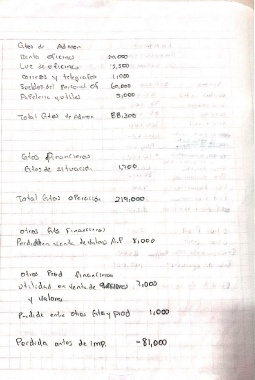 Gtos de Admon
Renta oficinas 20,000
Luz de oficina 2,300
correos y telegrafos 1,000
Sueldos del personal of 60,000
Papeleria y utiles 5,000
Total Gtos de Admon 88,300
Gtos financieros
Gtos de situación 1,700
Total Gtos operación 219,000
otros Gts Financieros
Perdida en venta de valores A.F 8,000
otros Prod financieros
utilidad en venta de 7,000
y valores
Perdida entre otros Gto y prod 1,000
Perdida antes de Imp. -81,000